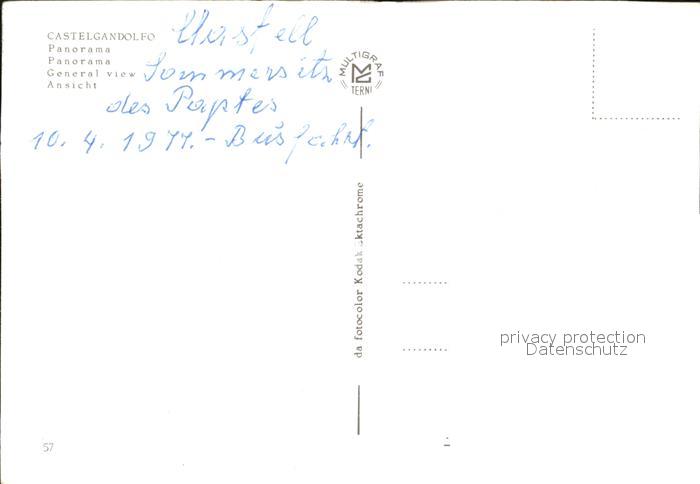 CASTELGANDOLFO
Panorama
Panorama
General view
Ansicht
Sommersitz
des Paptes
10. 4. 1977. - Busfahrt.
MULTIGRAF
TERNI
da fotocolor Kodak ektachrome
privacy protection
Datenschutz
57